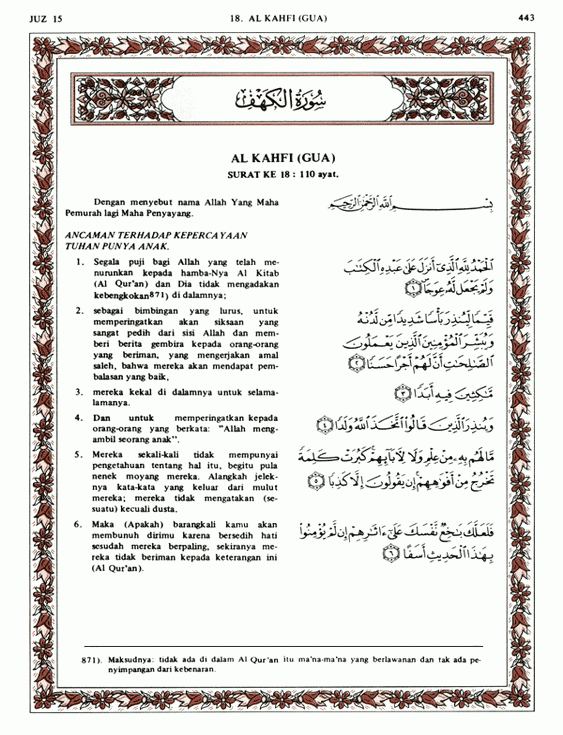 JUZ 15
18. AL KAHFI (GUA)
443
سُورَةُ الكَهْفِ
AL KAHFI (GUA)
SURAT KE 18 : 110 ayat.
Dengan menyebut nama Allah Yang Maha
Pemurah lagi Maha Penyayang.
بِسْمِ اللَّهِ الرَّحْمَٰنِ الرَّحِيمِ
ANCAMAN TERHADAP KEPERCAYAAN
TUHAN PUNYA ANAK.
1. Segala puji bagi Allah yang telah me-
nurunkan kepada hamba-Nya Al Kitab
(Al Qur'an) dan Dia tidak mengadakan
kebengkokan871) di dalamnya;
2. sebagai bimbingan yang lurus, untuk
memperingatkan akan siksaan yang
sangat pedih dari sisi Allah dan mem-
beri berita gembira kepada orang-orang
yang beriman, yang mengerjakan amal
saleh, bahwa mereka akan mendapat pem-
balasan yang baik,
3. mereka kekal di dalamnya untuk selama-
lamanya.
4. Dan untuk memperingatkan kepada
orang-orang yang berkata: "Allah meng-
ambil seorang anak".
5. Mereka sekali-kali tidak mempunyai
pengetahuan tentang hal itu, begitu pula
nenek moyang mereka. Alangkah jelek-
nya kata-kata yang keluar dari mulut
mereka; mereka tidak mengatakan (se-
suatu) kecuali dusta.
6. Maka (Apakah) barangkali kamu akan
membunuh dirimu karena bersedih hati
sesudah mereka berpaling, sekiranya me-
reka tidak beriman kepada keterangan ini
(Al Qur'an).
الْحَمْدُ لِلَّهِ الَّذِي أَنْزَلَ عَلَىٰ عَبْدِهِ الْكِتَابَ
وَلَمْ يَجْعَلْ لَهُ عِوَجًا ۝١
قَيِّمًا لِيُنْذِرَ بَأْسًا شَدِيدًا مِنْ لَدُنْهُ
وَيُبَشِّرَ الْمُؤْمِنِينَ الَّذِينَ يَعْمَلُونَ
الصَّالِحَاتِ أَنَّ لَهُمْ أَجْرًا حَسَنًا ۝٢
مَاكِثِينَ فِيهِ أَبَدًا ۝٣
وَيُنْذِرَ الَّذِينَ قَالُوا اتَّخَذَ اللَّهُ وَلَدًا ۝٤
مَا لَهُمْ بِهِ مِنْ عِلْمٍ وَلَا لِآبَائِهِمْ كَبُرَتْ كَلِمَةً
تَخْرُجُ مِنْ أَفْوَاهِهِمْ إِنْ يَقُولُونَ إِلَّا كَذِبًا ۝٥
فَلَعَلَّكَ بَاخِعٌ نَفْسَكَ عَلَىٰ آثَارِهِمْ إِنْ لَمْ يُؤْمِنُوا
بِهَٰذَا الْحَدِيثِ أَسَفًا ۝٦
871). Maksudnya: tidak ada di dalam Al Qur'an itu ma'na-ma'na yang berlawanan dan tak ada pe-
nyimpangan dari kebenaran.